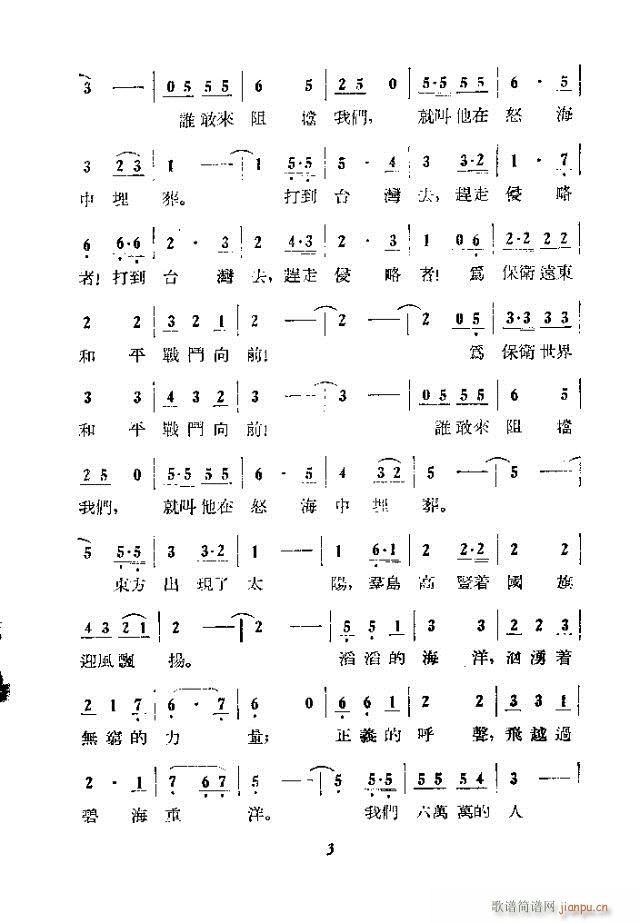 3 — — | 0 5 5 5 | 6 5 | 2 5 0 | 5·5 5 5 | 6 · 5
誰敢來阻擋我們，就叫他在怒海
3 2 3 | 1 — | 1 5·5 | 5 · 4 | 3 3·2 | 1 · 7
中埋葬。打到台灣去，趕走侵略
6 6·6 | 2 · 3 | 2 4·3 | 2 · 3 | 1 0 6 | 2·2 2 2
者！打到台灣去，趕走侵略者！爲保衛遠東
2 2 | 3 2 1 | 2 — | 2 — | 2 0 5 | 3·3 3 3
和平戰鬥向前！爲保衛世界
3 3 | 4 3 2 | 3 — | 3 — | 0 5 5 5 | 6 5
和平戰鬥向前！誰敢來阻擋
2 5 0 | 5·5 5 5 | 6 · 5 | 4 3 2 | 5 — | 5 —
我們，就叫他在怒海中埋葬。
5 5·5 | 3 3·2 | 1 — | 1 6·1 | 2 2·2 | 2 2
東方出現了太陽，羣島高豎着國旗
4 3 2 1 | 2 — | 2 — | 5 5 1 | 3 3 | 2 2 3
迎風飄揚。滔滔的海洋，洶湧着
2 1 7 | 6 · 7 | 6 0 | 6 6 1 | 2 · 2 | 3 3 1
無窮的力量；正義的呼聲，飛越過
2 · 1 | 7 6 7 | 5 — | 5 5·5 | 5 5 5 4 | 3 —
碧海重洋。我們六萬萬的人
3
歌谱简谱网
jianpu.cn